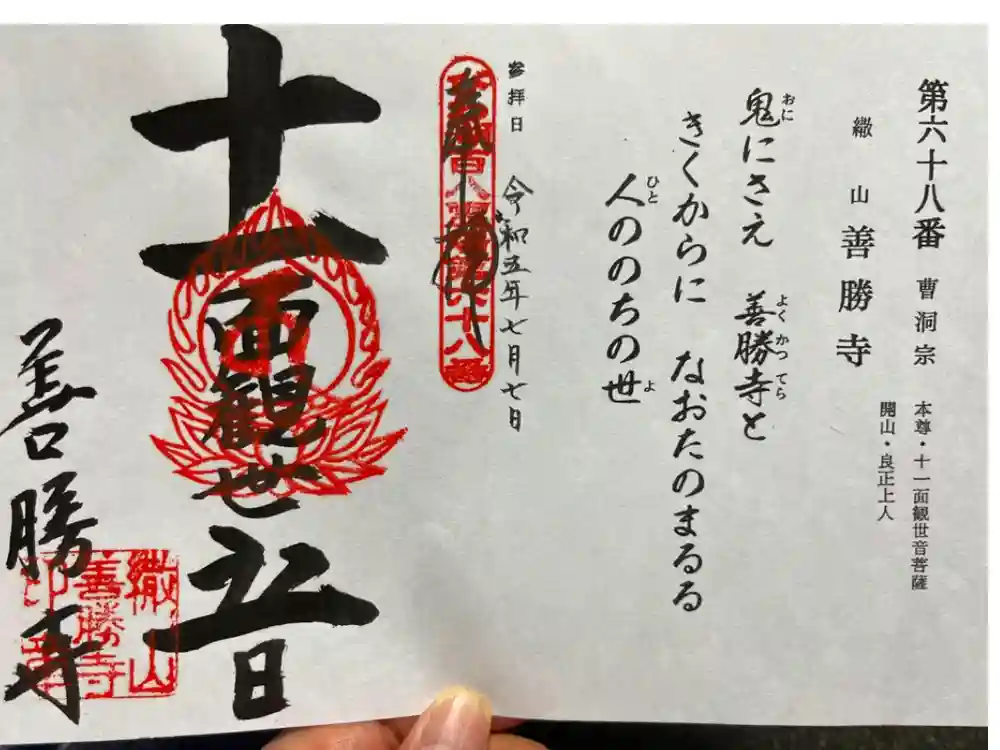 第六十八番 曹洞宗
本尊・十一面観世音菩薩
開山・良正上人
繖山 善勝寺
鬼にさえ 善勝寺と
おに よくかつてら
きくからに なおたのまるる
人ののちの世
ひと よ
参拝日 令和五年七月七日
十一面観世音
善勝寺
繖山
善勝寺
印章